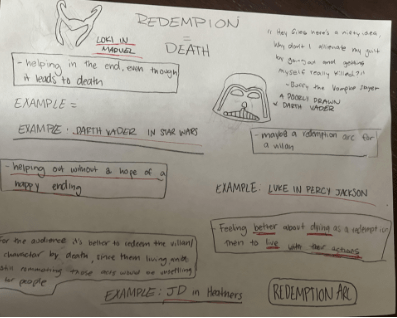 REDEMPTION
=
DEATH
LOKI IN
- helping in the end, even though
it leads to death
EXAMPLE =
EXAMPLE: DARTH VADER IN STAR WARS
- helping out without a hope of a
happy ending
For the audience it's better to redeem the villain/
character by death, since them living and
still
would be unsettling
for people
EXAMPLE: JD in Heathers
Hey
here's a nifty idea.
Why don't I alleviate my guilt
by going out and getting
myself really killed?"
- Buffy the Vampire Slayer
A POORLY DRAWN
DARTH VADER
- maybe a redemption arc for
a villain
EXAMPLE: LUKE IN PERCY JACKSON
- Feeling better about dying as a redemption
then to live with their actions
REDEMPTION ARC